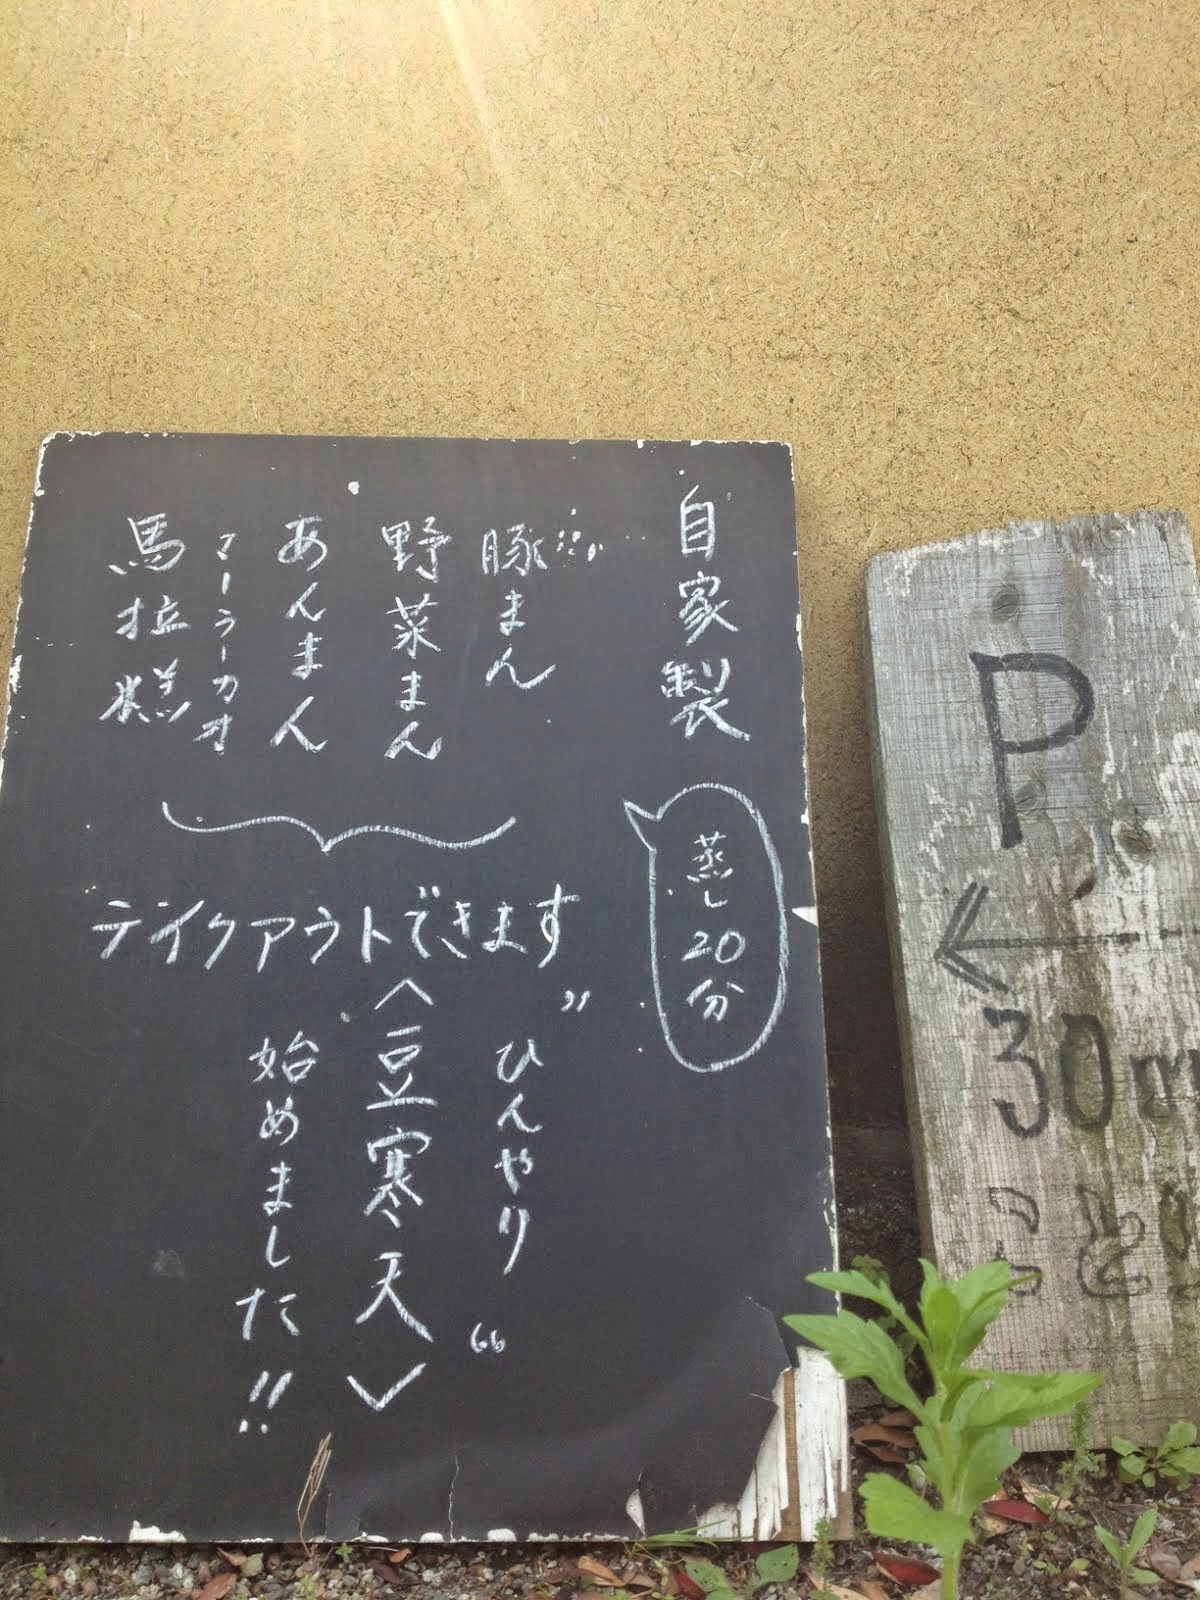 自家製
蒸し20分
豚まん
野菜まん
あんまん
マーラーカオ
馬拉糕
テイクアウトできます
"ひんやり"
〈豆寒天〉
始めました!!
P
←
30m